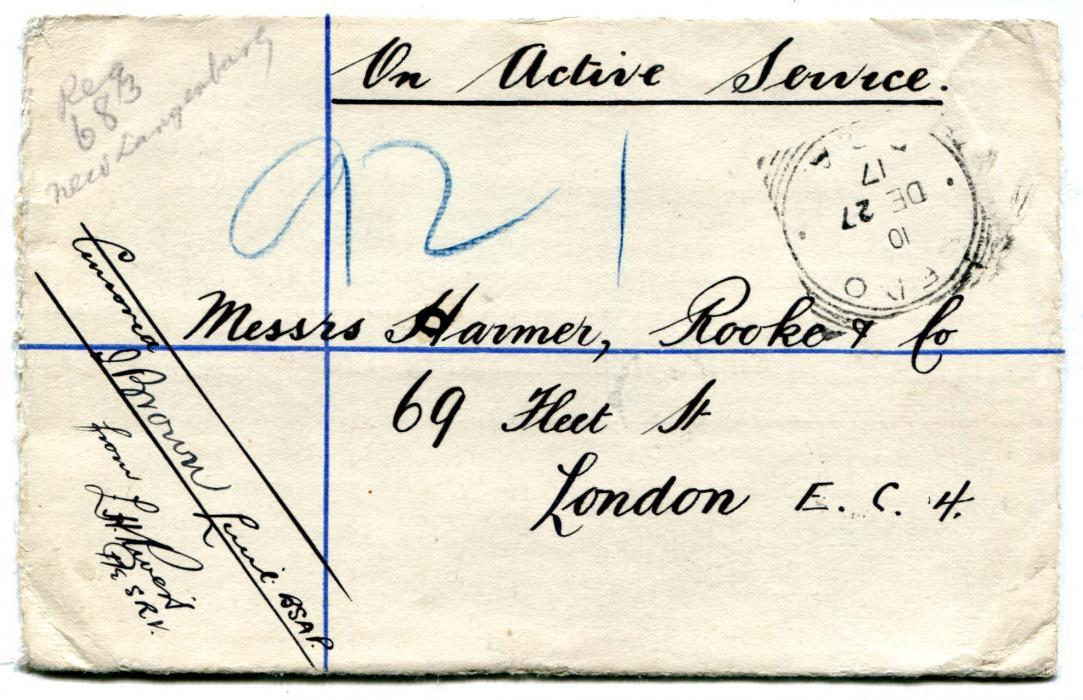 On Active Service.
Reg
68/3
new Langenburg
921
F P O
10
DE 27
17
Messrs Harmer, Rooke & Co
69 Fleet St
London E. C. 4.
Censored
Brown Lieut. BSAP.
from
S.R.V.